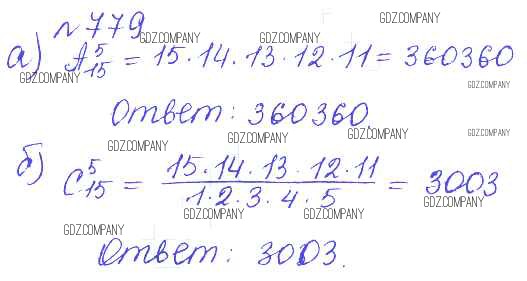 №779
а) A₁₅⁵ = 15·14·13·12·11 = 360360
Ответ: 360360.
б) C₁₅⁵ = (15·14·13·12·11)/(1·2·3·4·5) = 3003
Ответ: 3003.
GDZ.COMPANY
GDZ.COMPANY
GDZ.COMPANY
GDZ.COMPANY
GDZ.COMPANY
GDZ.COMPANY
GDZ.COMPANY
GDZ.COMPANY
GDZ.COMPANY
GDZ.COMPANY
GDZ.COMPANY
GDZ.COMPANY
GDZ.COMPANY